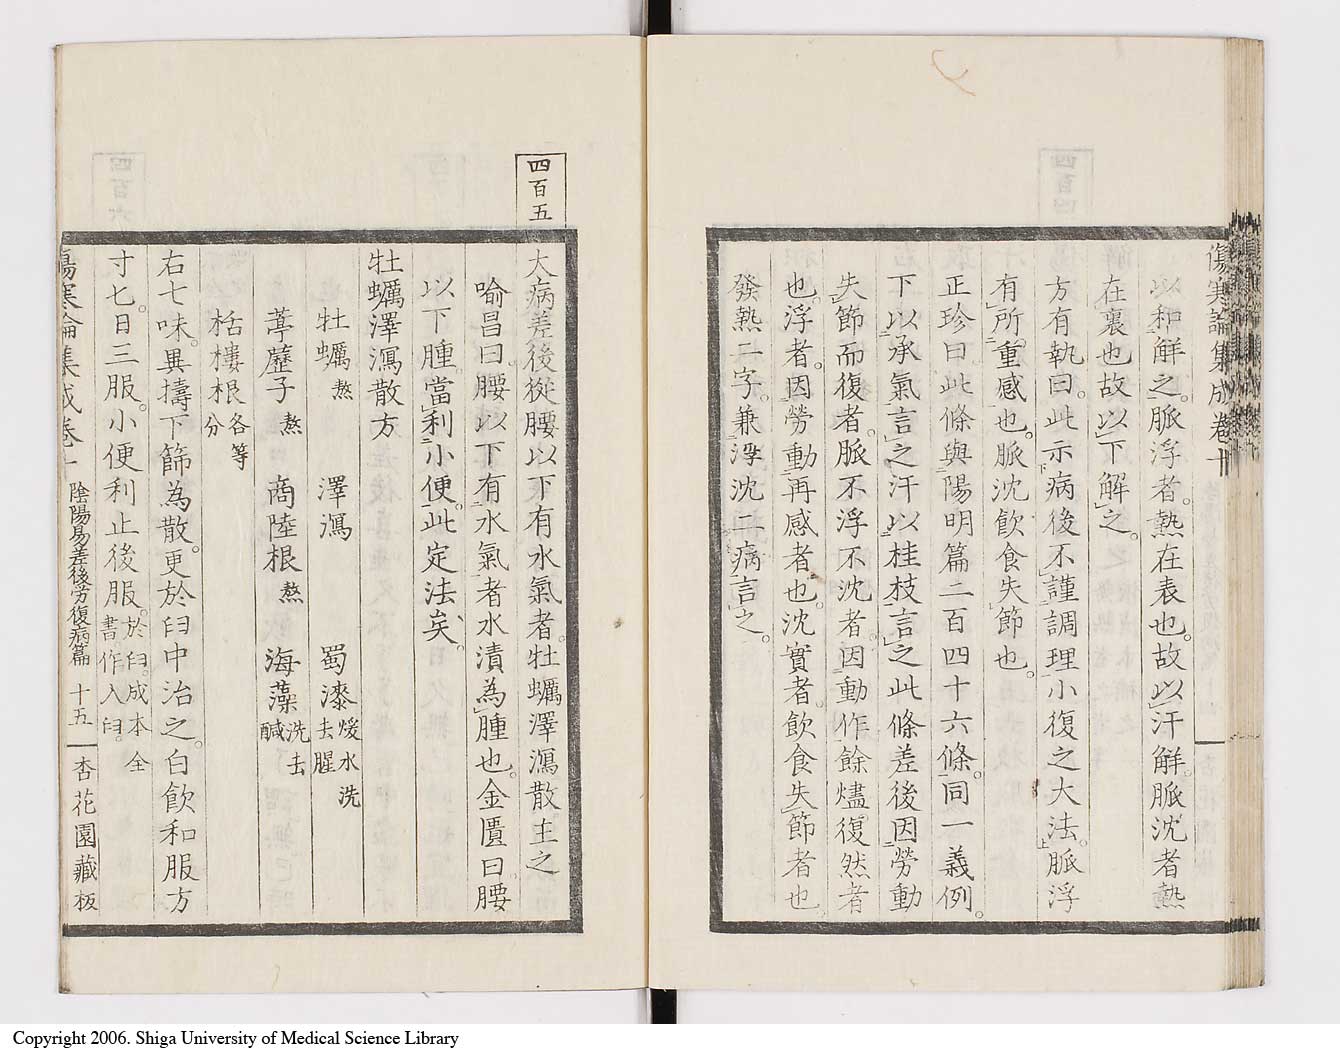 傷寒論集成卷十
以和解之。脈浮者。熱在表也。故以汗解。脈沈者熱
在裏也故以下解之。
方有執曰。此示病後不謹調理小復之大法。脈浮
有所重感也。脈沈飲食失節也。
正珍曰此條與陽明篇二百四十六條。同一義例。
下以承氣言之汗以桂枝言之此條差後因勞動
失節而復者。脈不浮不沈者。因動作餘燼復然者
也。浮者。因勞動再感者也。沈實者。飲食失節者也
發熱二字。兼浮沈二病言之。
四百五
大病差後從腰以下有水氣者。牡蠣澤瀉散主之
喻昌曰。腰以下有水氣者水漬為腫也。金匱曰腰
以下腫。當利小便。此定法矣。
牡蠣澤瀉散方
牡蠣熬 澤瀉 蜀漆煖水洗去腥
葶藶子熬 商陸根熬 海藻洗去鹹
栝樓根各等分
右七味。異擣下篩為散。更於臼中治之。白飲和服方
寸匕。日三服。小便利止後服。於臼。成本全書作入臼。
傷寒論集成卷十 陰陽易差後勞復病篇 十五 杏花園藏板